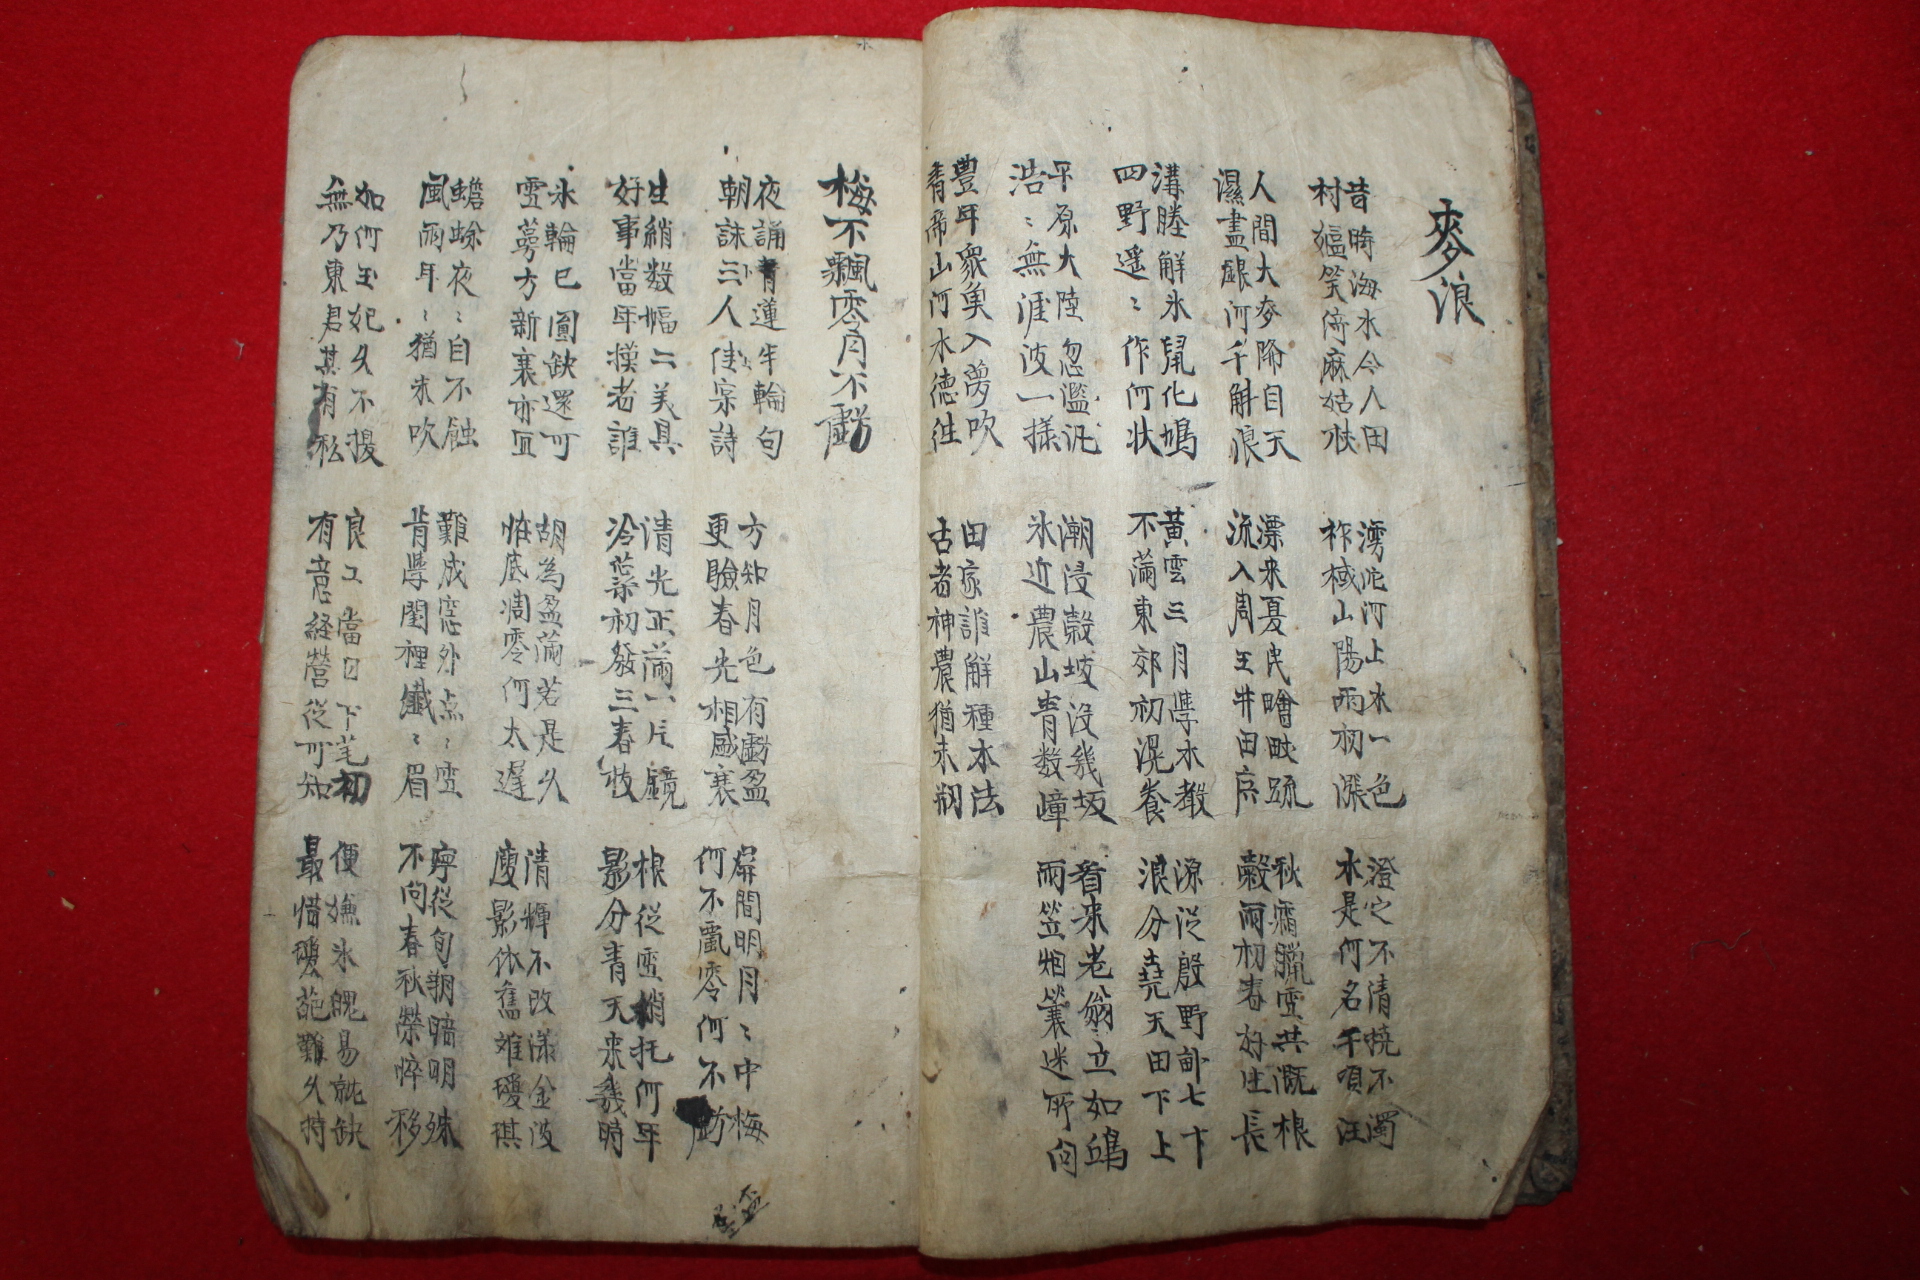 麥浪
昔時海水今人田
村嫗笑倚麻姑袂
滹沱河上水一色
祚棫山陽雨初漲
澄之不清撓不濁
水是何名千頃汪
人間大麥降自天
濕盡銀河千斛浪
漂來夏民疇畝疏
流入周王井田
秋霜臘雪共漑根
穀雨初春好生長
溝塍解氷鼠化鳩
四野遥〻作何狀
黃雲三月學水敎
不滿東郊初滉養
源從殷野畝七十
浪分堯天田下上
平原大陸忽濫汎
浩〻無涯波一樣
潮浸穀坡沒幾坂
氷近農山靑數嶂
看來老翁立如鷗
雨笠烟簑迷所向
豊年衆魚入夢吹
靑帝山河水德徃
田家誰解種水法
古者神農猶未刱
梅不飄零月不虧
夜誦靑蓮半輪句
朝詠三人佳宗詩
方知月色有虧盈
更驗春光相盛衰
屛間明月〻中梅
何不飄零何不虧
生綃數幅二美具
好事當年模者誰
淸光正滿一片鏡
冷蘂初發三春枝
根從雪梢托何年
影分靑天來幾時
氷輪已圓缺還可
雪萼方新衰亦宜
胡為盈滿若是久
惟底凋零何太遲
淸輝不改漾金波
廋影依舊堆瓊琪
蟾蜍夜〻自不蝕
風雨年〻猶未吹
難成窓外点〻雪
肯學閨裡纖〻眉
寧從旬朔暗明殊
不向春秋榮悴移
如何玉妃久不援
無乃東君其有私
良工當日下筆初
有意経營從可知
便嫌氷魄易就缺
最惜瓊葩難久持